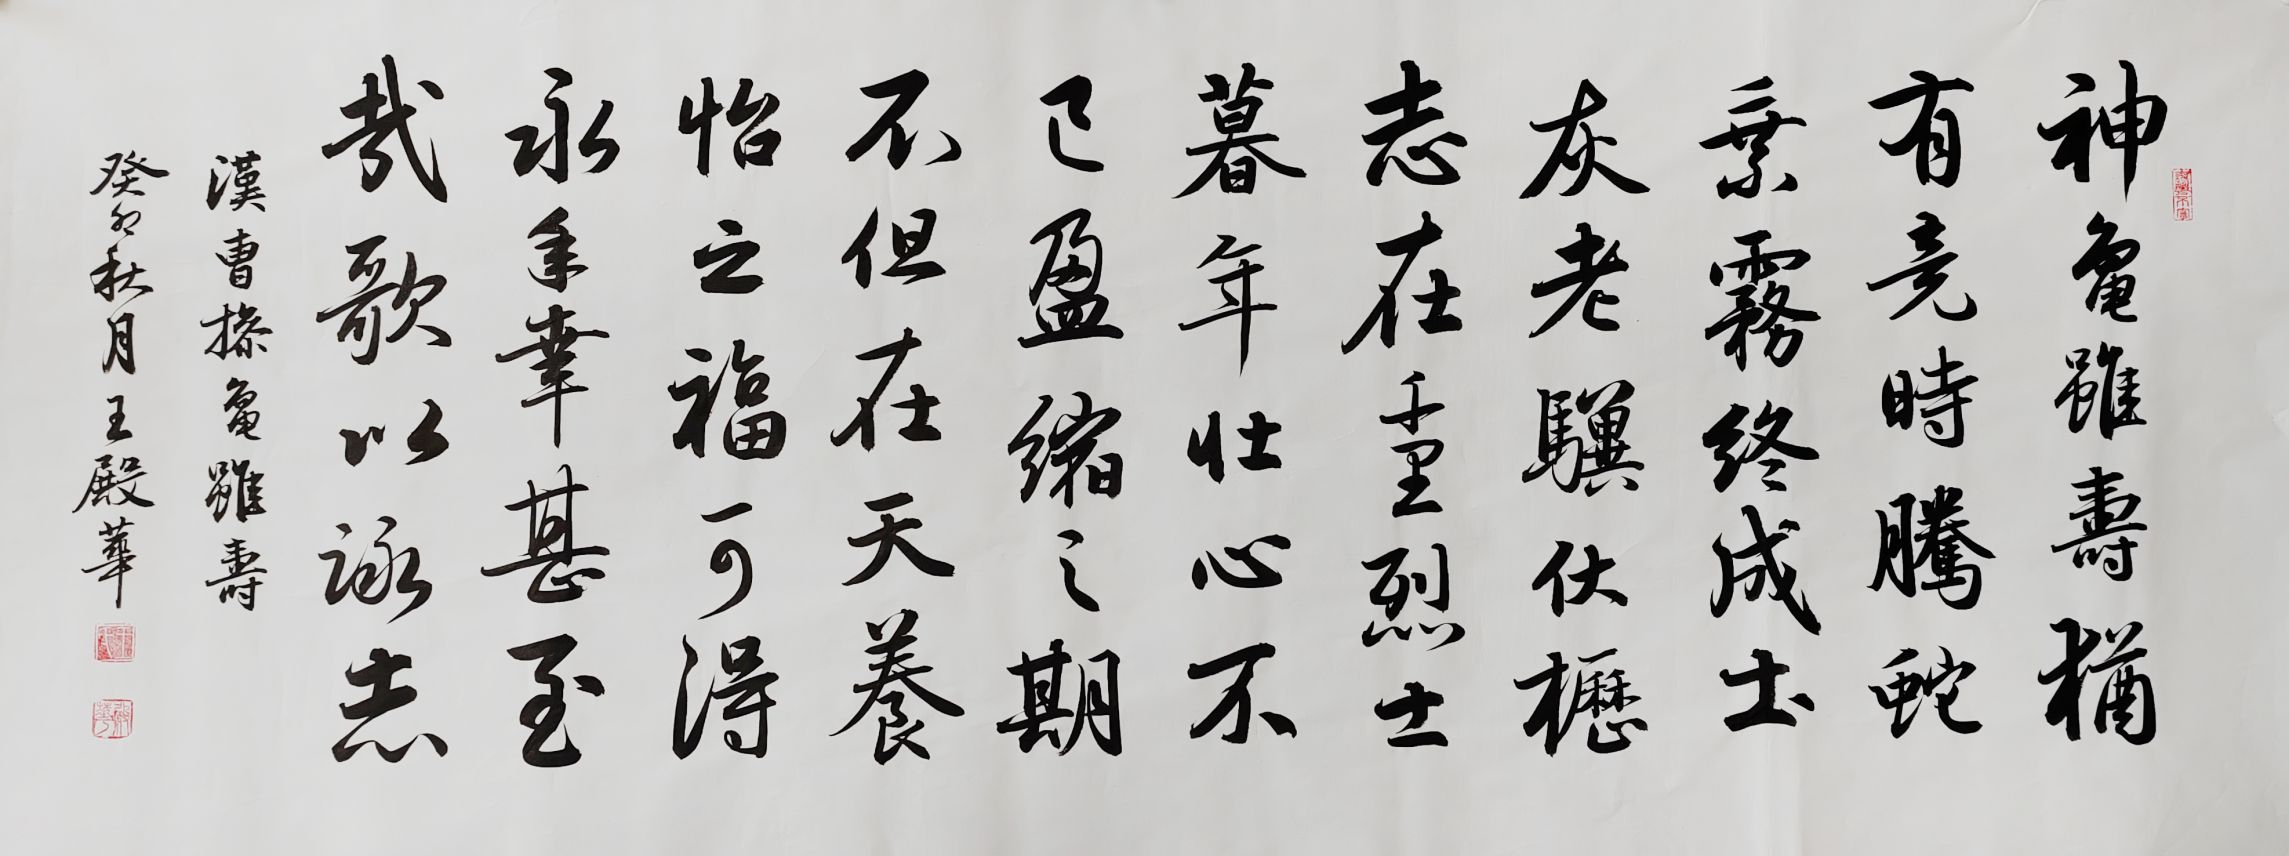 神龜雖壽猶
有竟時騰蛇
乘霧終成土
灰老驥伏櫪
志在千里烈士
暮年壯心不
已盈縮之期
不但在天養
怡之福可得
永年幸甚至
哉歌以詠志
漢曹操龜雖壽
癸卯秋月王殿華